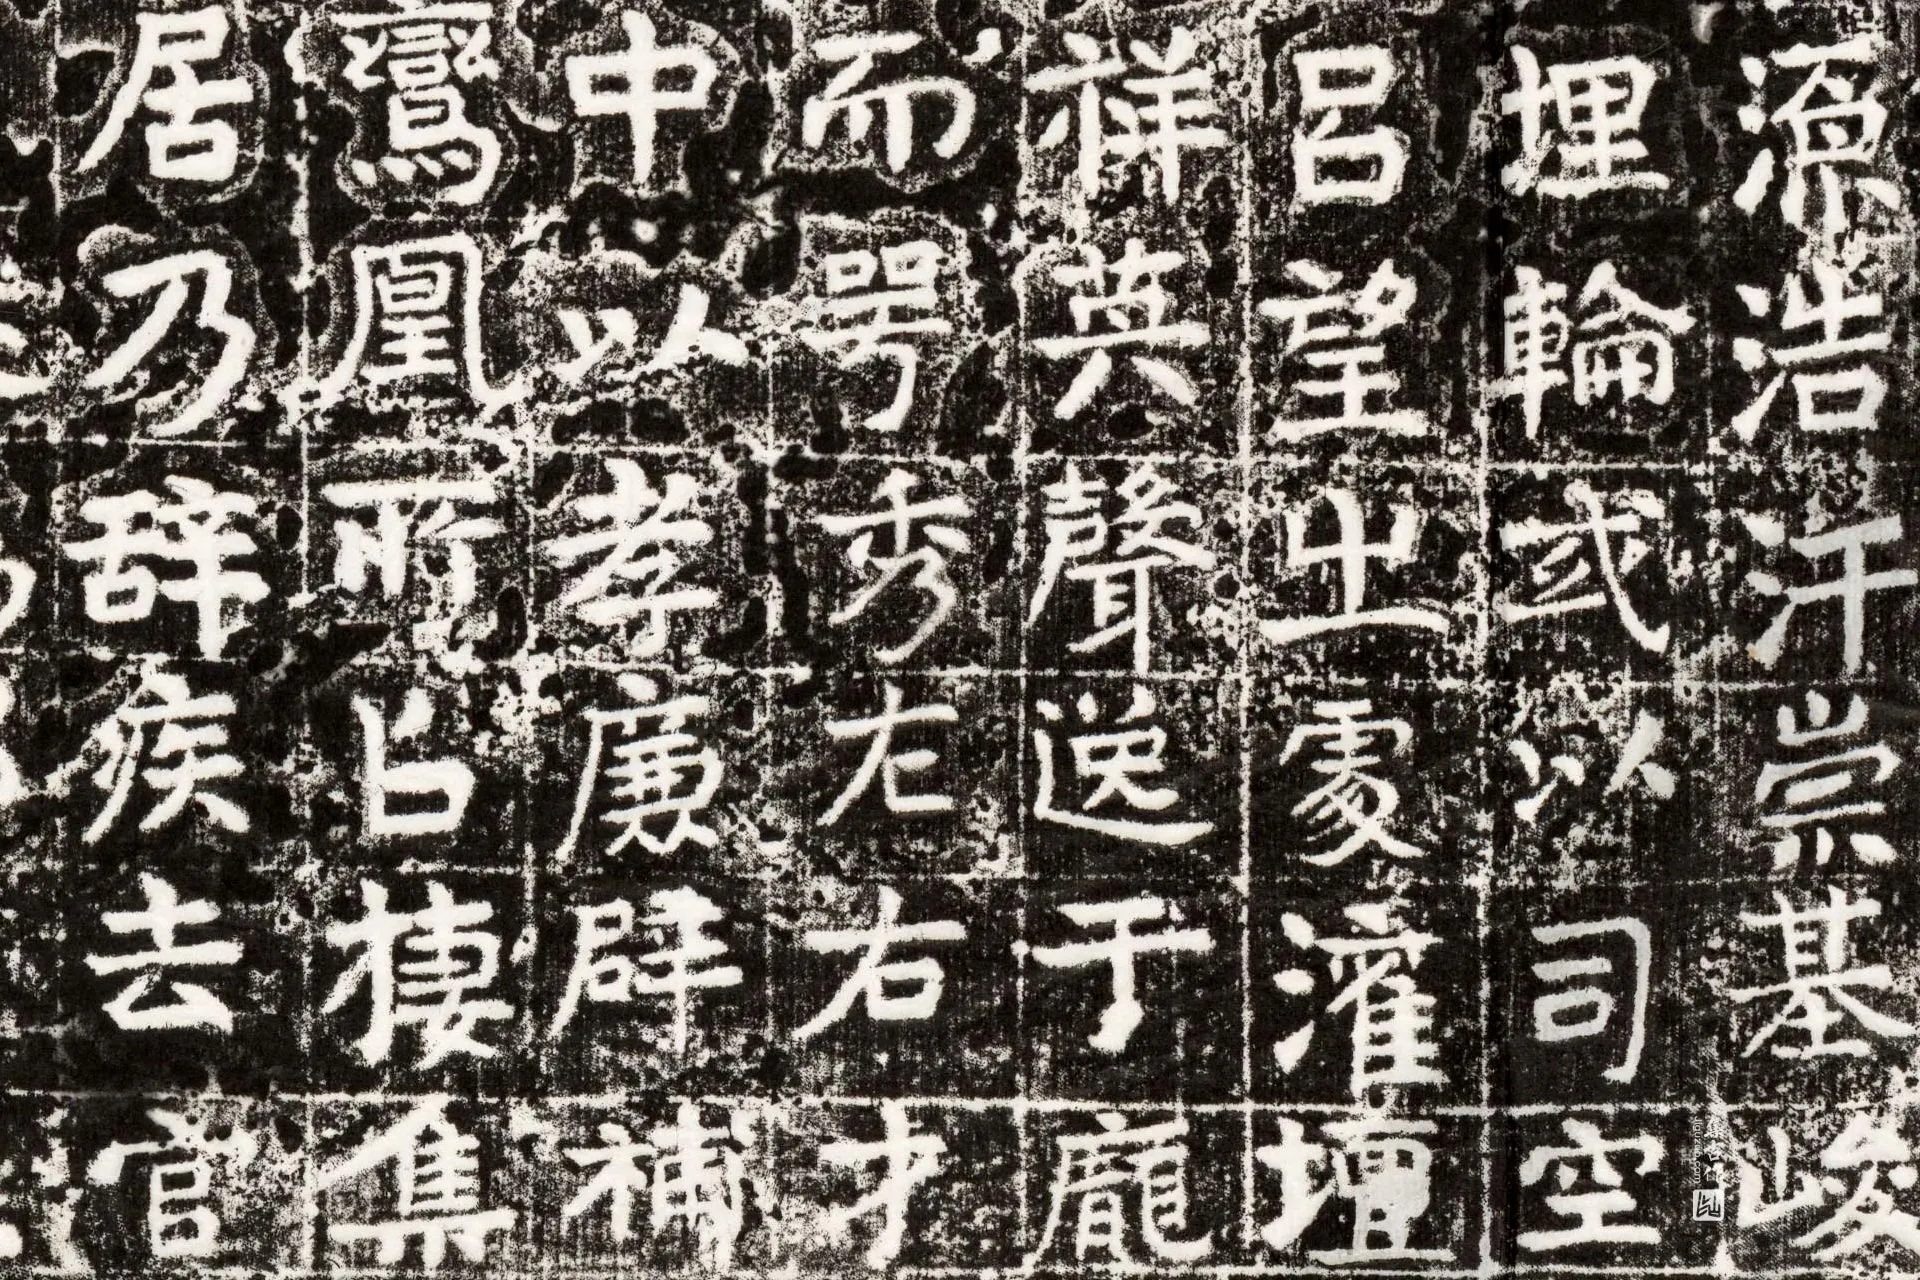 源浩汗崇基峻
埋輪式以司空
呂望出處灌壇
祥英聲送于龐
而咢秀左右才
中以孝廉辟補
鸞凰所以棲集
居乃辞疾去官